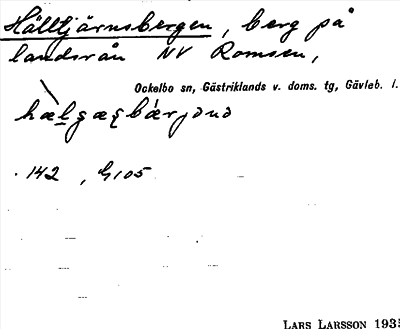 Hälltjärnsbergen, berg på
landsrån NV Romsen,
Ockelbo sn, Gästriklands v. doms. tg, Gävleb. l.
142, G105
LARS LARSSON 1935